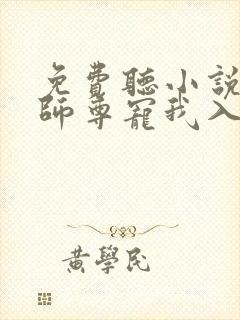 免費聽小說
師尊寵我入
黃學民